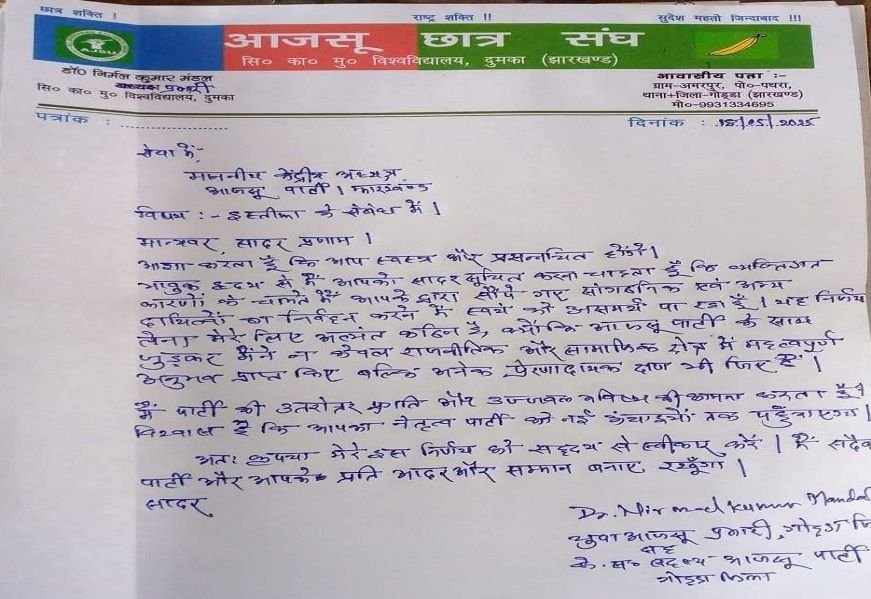 छात्र शक्ति ! राष्ट्र शक्ति !! सुदेश महतो जिन्दाबाद !!!
AJSU
आजसू छात्र संघ
सि० का० मु० विश्वविद्यालय, दुमका (झारखण्ड)
डॉ० निर्मल कुमार मंडल
प्रभारी
सि० का० मु० विश्वविद्यालय, दुमका
आवासीय पता :-
ग्राम-अमरपुर, पो०-पथरा,
थाना+जिला-गोड्डा (झारखण्ड)
मो०-9931334695
पत्रांक : ........................ दिनांक : 18/05/2025
सेवा में,
माननीय केंद्रीय अध्यक्ष,
आजसू पार्टी। झारखंड
विषय :- इस्तीफा के संबंध में।
मान्यवर, सादर प्रणाम।
आशा करता हूँ कि आप स्वस्थ और प्रसन्नचित होंगे।
भावुक हृदय से मैं आपको सादर सूचित करना चाहता हूँ कि व्यक्तिगत
कारणों के चलते मैं आपके द्वारा सौंपे गए सांगठनिक एवं अन्य
दायित्वों का निर्वहन करने में स्वयं को असमर्थ पा रहा हूँ। यह निर्णय
लेना मेरे लिए अत्यंत कठिन है, क्योंकि आजसू पार्टी के साथ
जुड़कर मैंने न केवल राजनीतिक और सामाजिक क्षेत्र में महत्वपूर्ण
अनुभव प्राप्त किए बल्कि अनेक प्रेरणादायक क्षण भी जिए हैं।
मैं पार्टी की उत्तरोतर प्रगति और उज्जवल भविष्य की कामना करता हूँ।
विश्वास है कि आपका नेतृत्व पार्टी को नई ऊंचाइयों तक पहुँचाएगा।
अतः कृपया मेरे इस निर्णय को सहृदय से स्वीकार करें। मैं सदैव
पार्टी और आपके प्रति आदर और सम्मान बनाए रखूँगा।
सादर,
Dr. Nirmal Kumar Mandal
युवा आजसू प्रभारी, गोड्डा जि
सह
के. स० सदस्य आजसू पार्टी
गोड्डा जिला